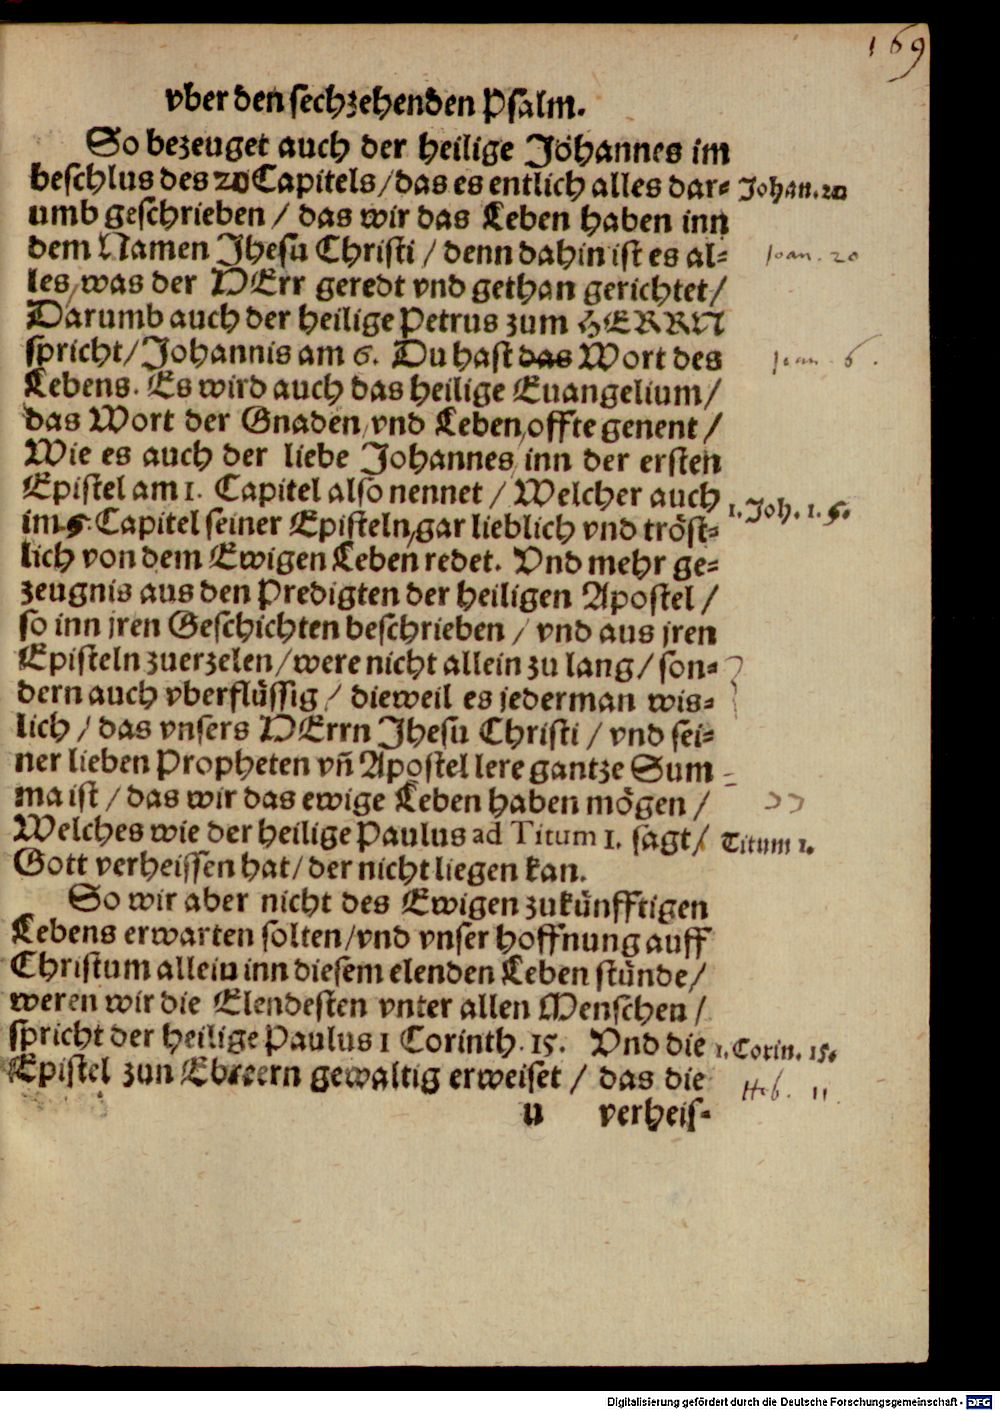 169
vber den sechzehenden Psalm.
So bezeuget auch der heilige Johannes im
beschlus des 20 Capitels / das es entlich alles dar=
Johan. 20
umb geschrieben / das wir das Leben haben inn
dem Namen Jhesu Christi / denn dahin ist es al=
Joan. 20
les, was der HErr geredt vnd gethan gerichtet /
Darumb auch der heilige Petrus zum HERRN
spricht / Johannis am 6. Du hast das Wort des
Joan. 6.
Lebens. Es wird auch das heilige Euangelium /
das Wort der Gnaden, vnd Leben, offte genent /
Wie es auch der liebe Johannes, inn der ersten
Epistel am 1. Capitel also nennet / Welcher auch
1. Joh. 1. 5.
im 5. Capitel seiner Episteln, gar lieblich vnd tröst=
lich von dem Ewigen Leben redet. Vnd mehr ge=
zeugnis aus den Predigten der heiligen Apostel /
so inn jren Geschichten beschrieben / vnd aus jren
Episteln zuerzelen / were nicht allein zu lang / son=
dern auch vberflüssig / dieweil es jederman wis=
lich / das vnsers HErrn Jhesu Christi / vnd sei=
ner lieben Propheten vñ Apostel lere gantze Sum
ma ist / das wir das ewige Leben haben mögen /
Welches wie der heilige Paulus ad Titum 1. sagt /
Titum 1.
Gott verheissen hat / der nicht liegen kan.
So wir aber nicht des Ewigen zukünfftigen
Lebens erwarten solten / vnd vnser hoffnung auff
Christum allein inn diesem elenden Leben stünde /
weren wir die Elendesten vnter allen Menschen /
spricht der heilige Paulus 1 Corinth. 15. Vnd die
1. Corin. 15.
Epistel zun Ebreern gewaltig erweiset / das die
Heb. 11.
u verheis=
Digitalisierung gefördert durch die Deutsche Forschungsgemeinschaft - DFG